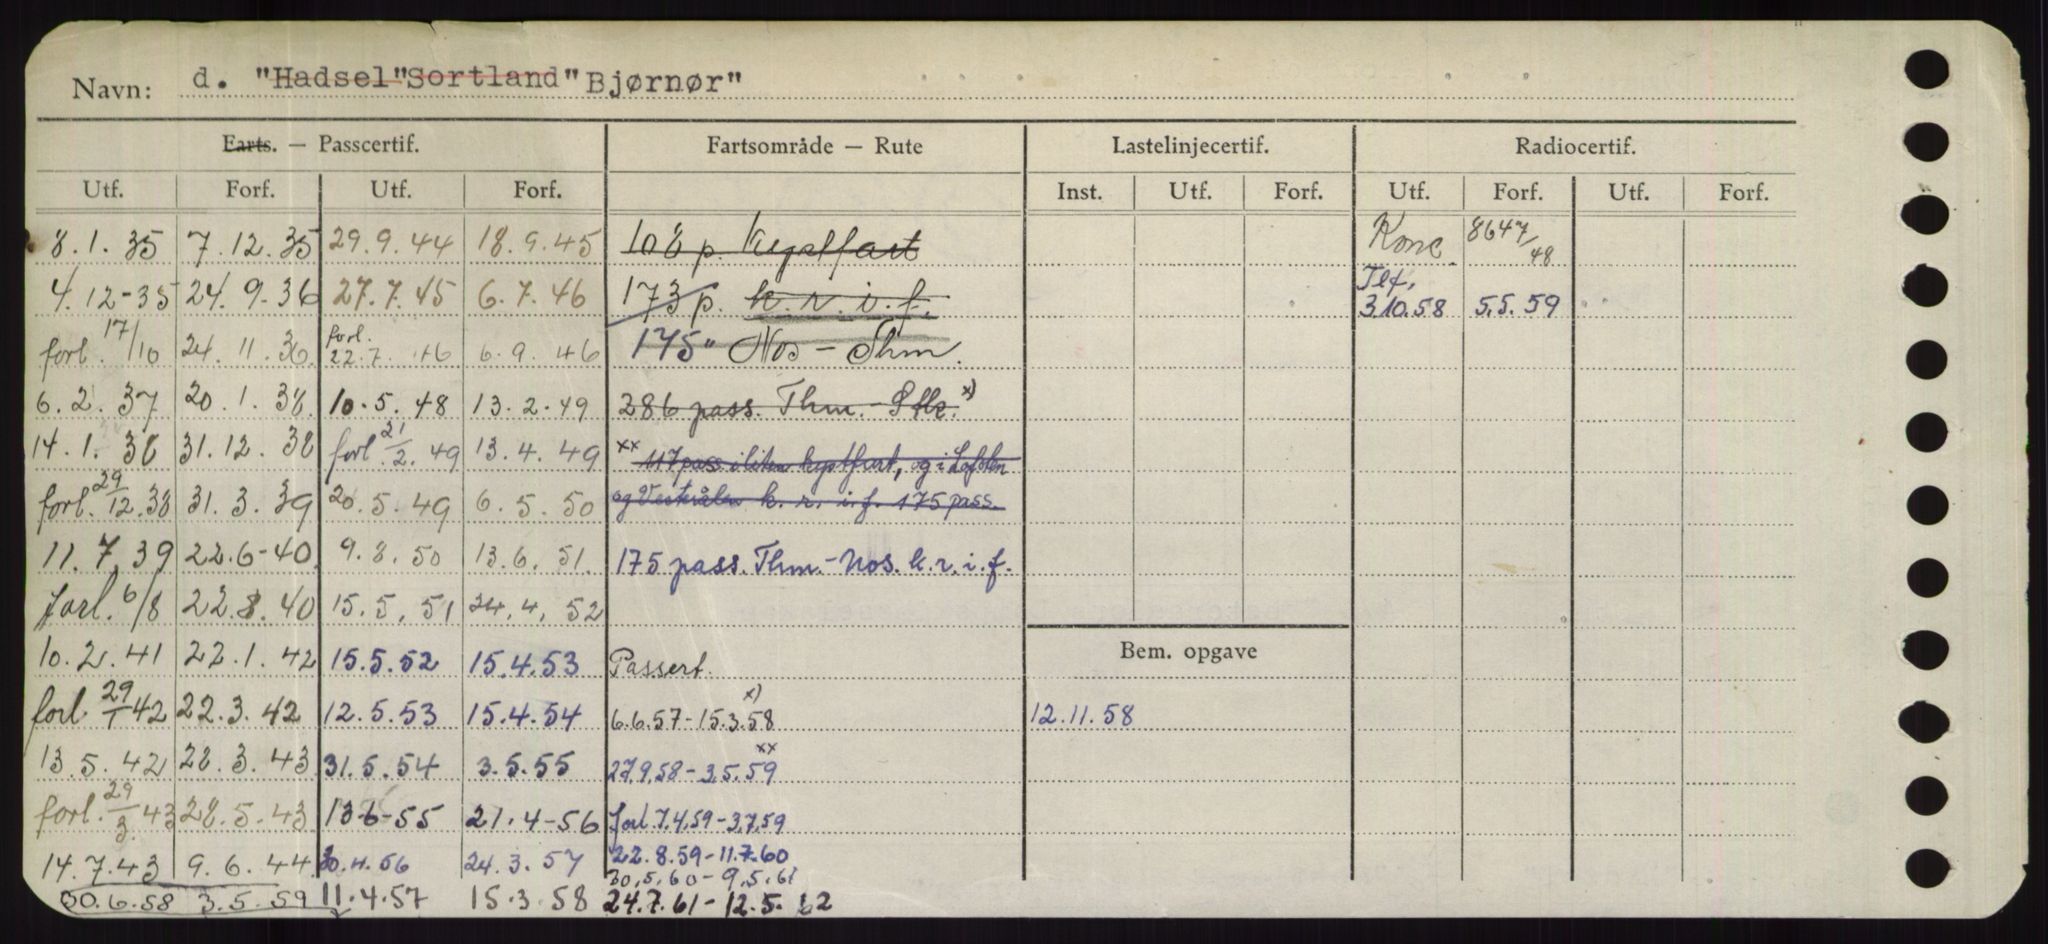 Navn: d. "Hadsel" Sortland "Bjørnør"
Farts. — Passcertif. Fartsområde — Rute Lastelinjecertif. Radiocertif.
Utf. Forf. Utf. Forf. Inst. Utf. Forf. Utf. Forf. Utf. Forf.
8.1.35 7.12.35 29.9.44 18.9.45 108 p. Kystfart Konc. 8647/48
4.12-35 24.9.36 27.7.45 6.7.46 173 p. k.r.i.f. Tlf. 3.10.58 5.5.59
forl. 17/10 24.11.36 forl. 22.7.46 6.9.46 175 " Nos - Thm.
6.2.37 20.1.38 10.5.48 13.2.49 286 pass. Thm. - Stk. x)
14.1.38 31.12.38 forl. 21/2.49 13.4.49 xx 117 pass i liten kystfart, og i Lofoten
forl. 29/12.38 31.3.39 20.5.49 6.5.50 og Vesterålen k.r.i.f. 175 pass.
11.7.39 22.6-40 9.8.50 13.6.51. 175 pass. Thm. - Nos. k.r.i.f.
forl. 6/8 22.8.40 15.5.51 24.4.52
10.2.41 22.1.42 15.5.52 15.4.53 Passert. Bem. opgave
forl 29/1 42 22.3.42 12.5.53 15.4.54 6.6.57 - 15.3.58 x) 12.11.58
13.5.42 28.3.43 31.5.54 3.5.55 27.9.58 - 3.5.59 xx
forl. 29/3 43 28.5.43 13-6-55 21.4-56 forl 7.4.59 - 3.7.59
14.7.43 9.6.44 30.4.56 24.3.57 22.8.59 - 11.7.60
30.5.60 - 9.5.61
30.6.58 3.5.59 11.4.57 15.3.58 24.7.61 - 12.5.62